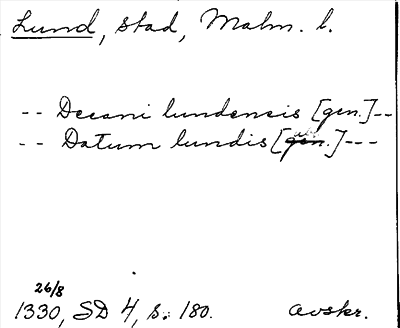 Lund, stad, Malm. l.
-- Decani lundensis [gen.]--
-- Datum lundis [abl.]---
26/8
1330, SD 4, s. 180. avskr.